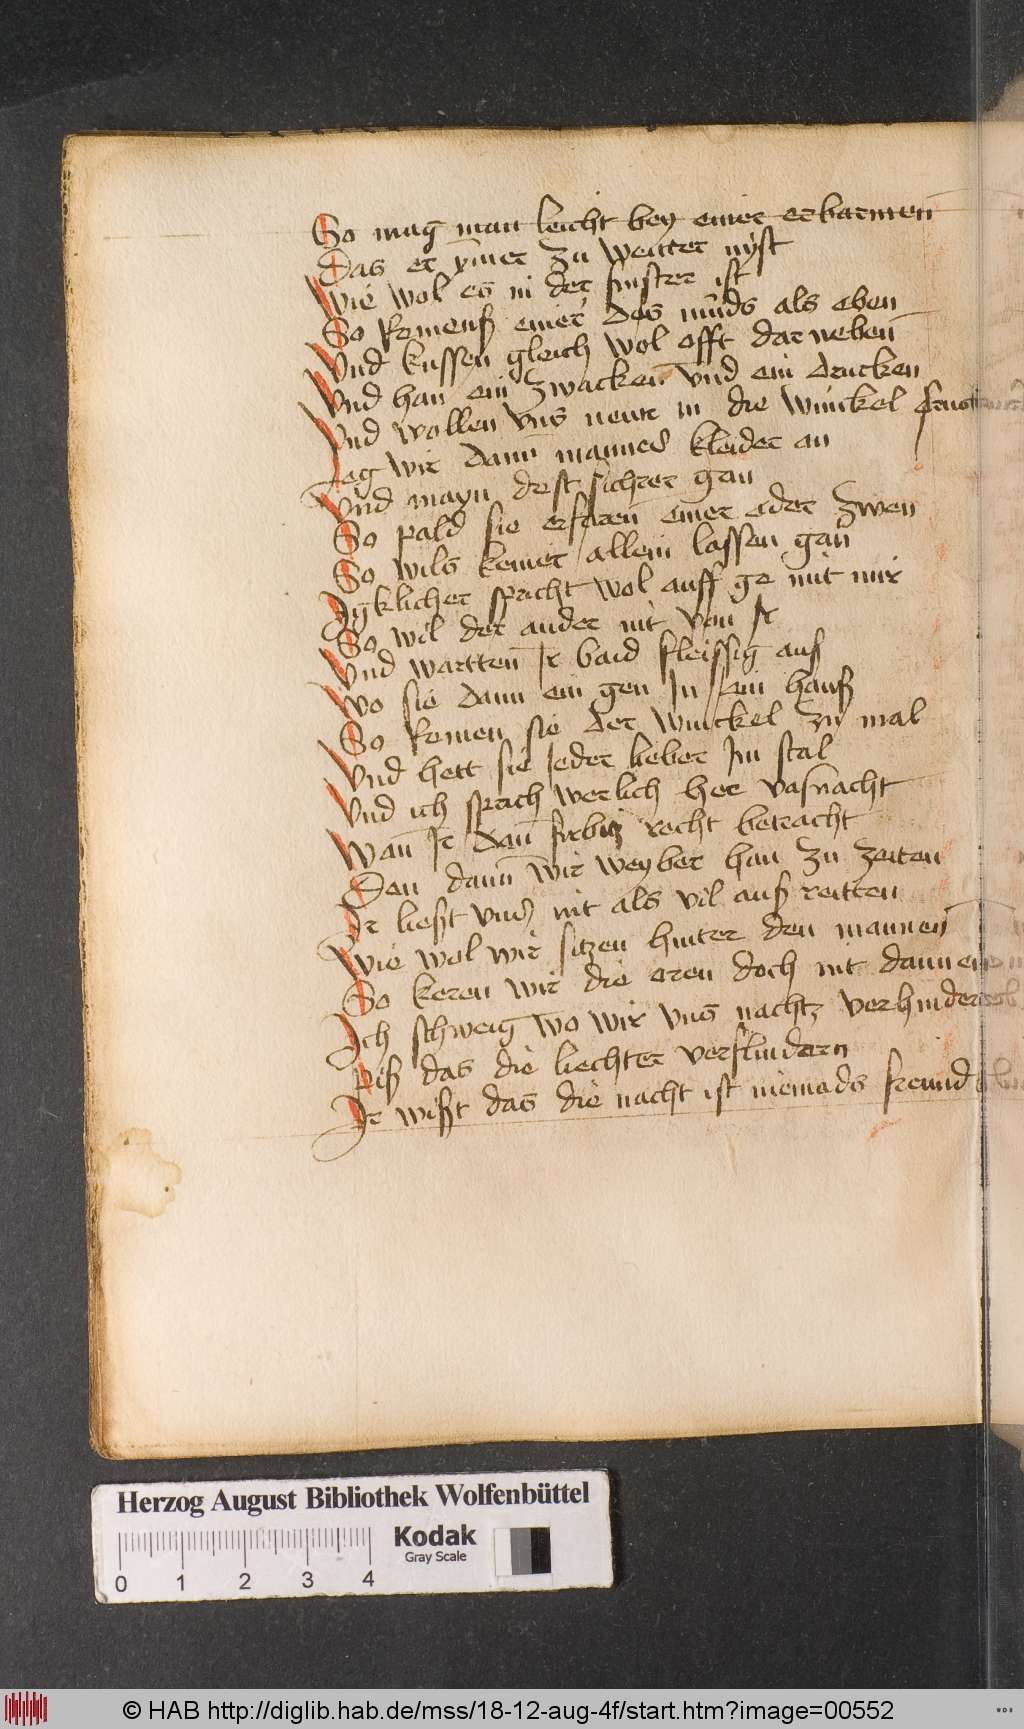 So mag man leicht bey einer erbarmen
Das er ymer zu weitter nyst
Wie wol es in der finster ist
So komenß einer des münds als eben
Vnd kussen gleich wol offt dar neben
Vnd han ein zwacken vnd ein drucken
Vnd wollen vns neur in die winckel
leg wir dann mannes kleider an
Vnd mayn dest sichrer gan
So pald sie erfaren einer oder zwen
So wils keiner allein lassen gan
Igklicher spricht wol auff ge mit mir
So wil der ander nit von Ir
Vnd wartten Ir baid fleissig auß
Wo sie dann ein gen In ein hauß
So komen sie der winckel zu mal
Vnd hett sie Ieder lieber Im stal
Vnd ich sprich werlich her vasnacht
Wan Ir dan furbitz recht betracht
Den dann wir weyber han zu zeiten
Ir ließt vnß nit als vil auß reitten
Wie wol wir sitzen hinter den mannen
So keren wir die oren doch nit dannen
Ich schweig wo wir vns nachtz
Piß das die liechter verflindern
Ir wißt das die nacht ist niemads freund
Herzog August Bibliothek Wolfenbüttel
Kodak
Gray Scale
0 1 2 3 4
© HAB http://diglib.hab.de/mss/18-12-aug-4f/start.htm?image=00552